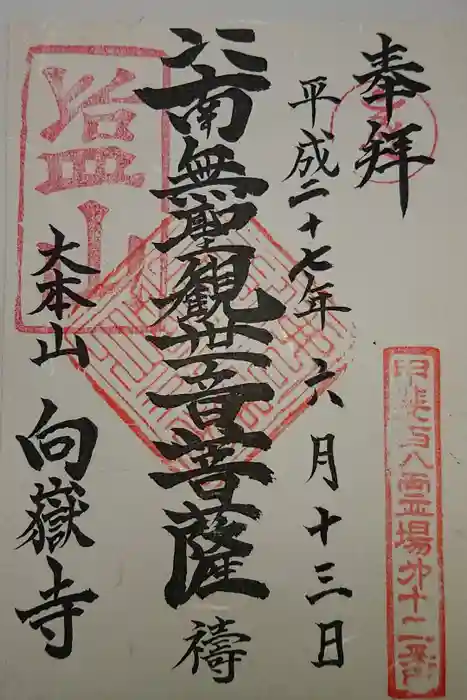 奉拝
甲斐百八霊場第十二番
平成二十七年六月十三日
南無聖観世音菩薩 禱
塩山
大本山 向嶽寺